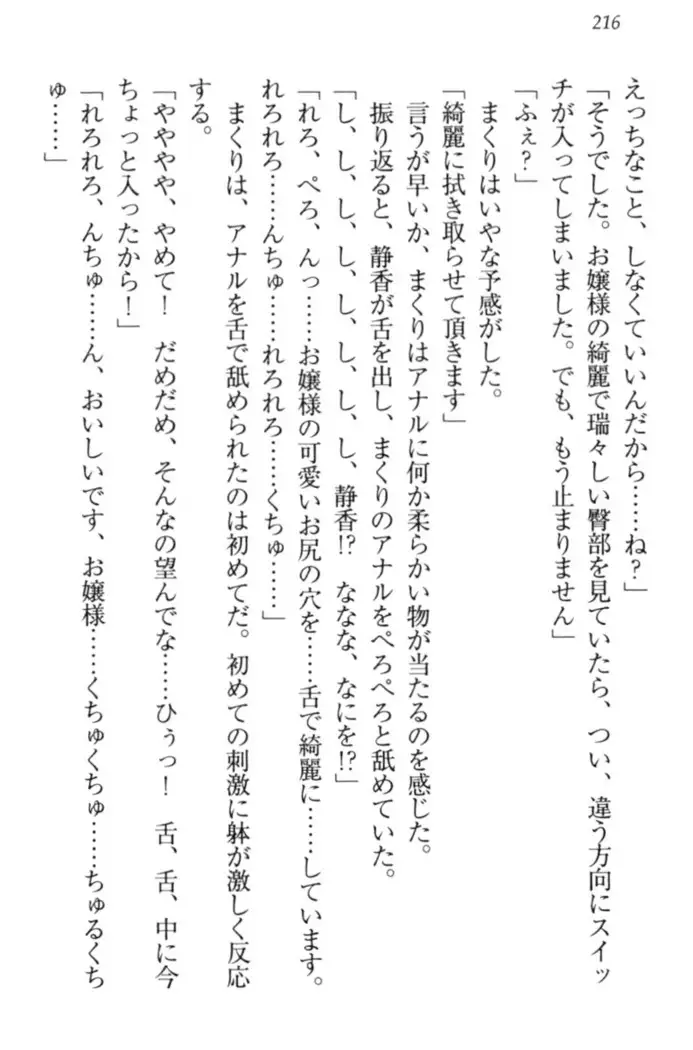 216
えっちなこと、しなくていいんだから……ね?」
「そうでした。お嬢様の綺麗で瑞々しい臀部を見ていたら、つい、違う方向にスイッ
チが入ってしまいました。でも、もう止まりません」
「ふぇ?」
まくりはいやな予感がした。
「綺麗に拭き取らせて頂きます」
言うが早いか、まくりはアナルに何か柔らかい物が当たるのを感じた。
振り返ると、静香が舌を出し、まくりのアナルをぺろぺろと舐めていた。
「し、し、し、し、し、し、し、静香!? ななな、なにを!?」
「れろ、ぺろ、んっ……お嬢様の可愛いお尻の穴を……舌で綺麗に……しています。
れろれろ……んちゅ……れろれろ……くちゅ……」
まくりは、アナルを舌で舐められたのは初めてだ。初めての刺激に躰が激しく反応
する。
「ややや、やめて! だめだめ、そんなの望んでな……ひぅっ! 舌、舌、中に今
ちょっと入ったから!」
「れろれろ、んちゅ……ん、おいしいです、お嬢様……くちゅくちゅ……ちゅるくち
ゅ……」